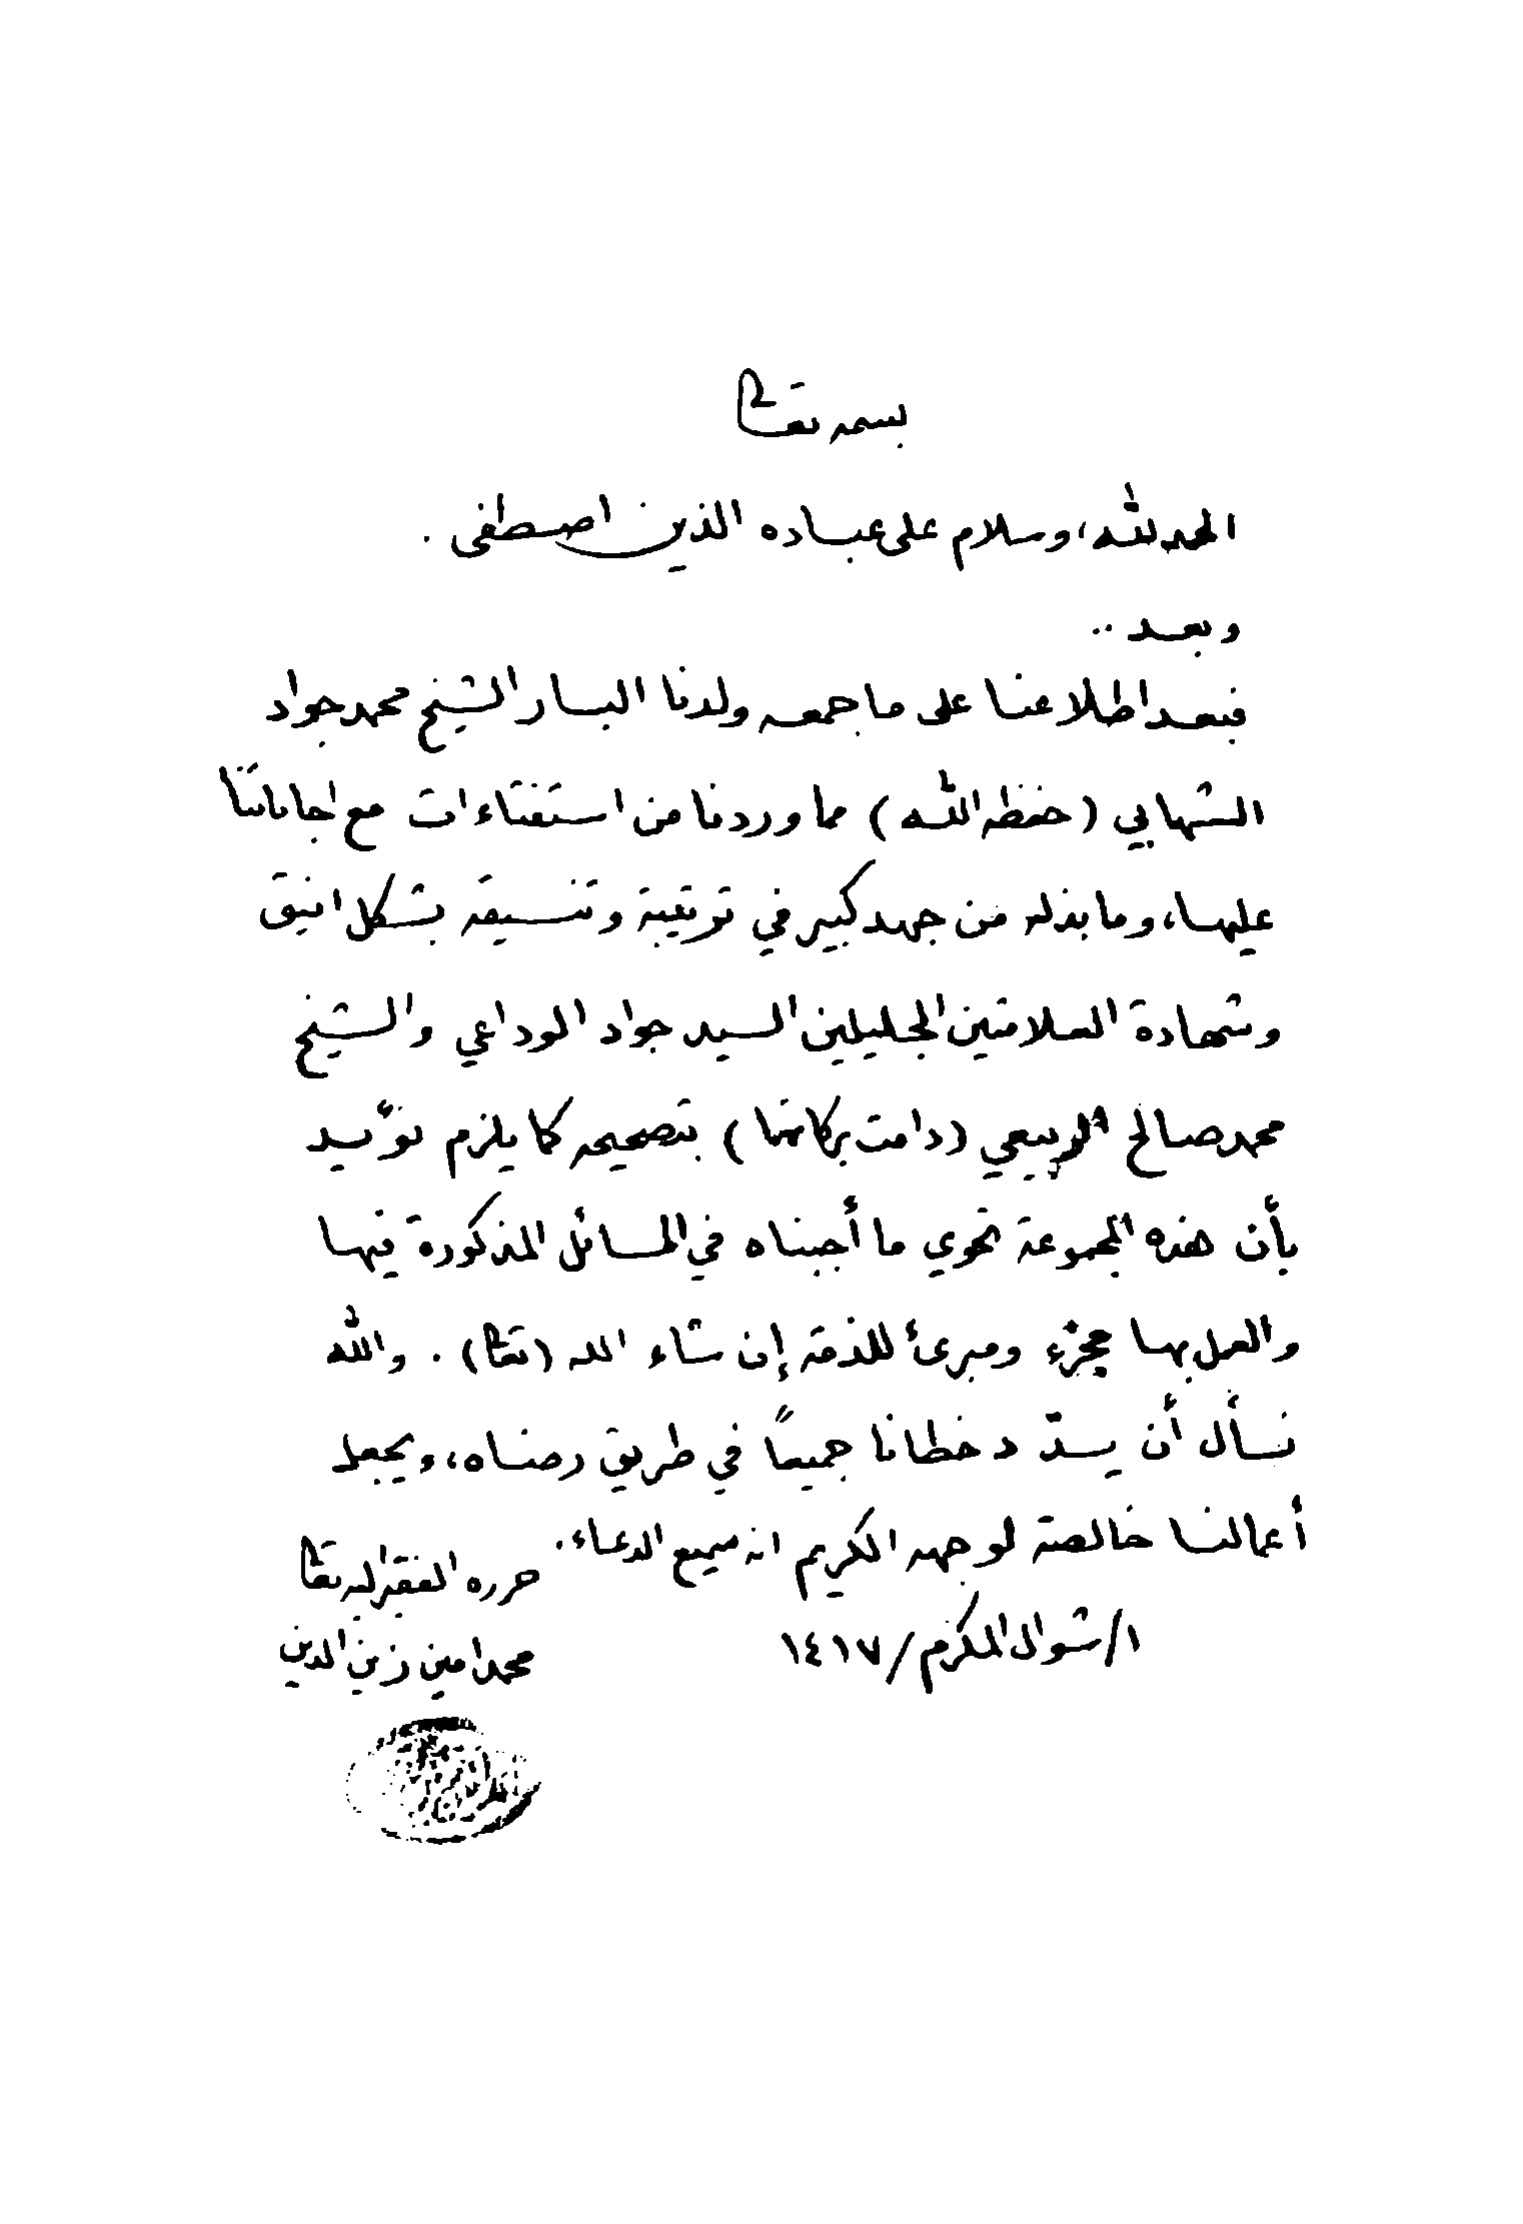 بسمه تعالى
الحمد لله، وسلام على عباده الذين اصطفى .
وبعد ..
فبعد اطلاعنا على ما جمعه ولدنا البار الشيخ محمد جواد
الشهابي (حفظه الله) مما وردنا من استفتاءات مع اجاباتنا
عليها، وما بذله من جهد كبير في ترتيبه وتنسيقه بشكل انيق
وشهادة العلامتين الجليلين السيد جواد الوداعي والشيخ
محمد صالح الربيعي (دامت بركاتهما) بتصحيحه كما يلزم نؤيد
بأن هذه المجموعة تحوي ما أجبناه في المسائل المذكورة فيها
والعمل بها مجزء ومبرئ للذمة إن شاء الله (تعالى) . والله
نسأل أن يسدّد خطانا جميعاً في طريق رضاه، ويجعل
أعمالنا خالصة لوجهه الكريم انه سميع الدعاء.
حرره الفقير اليه تعالى
١/شوال المكرم/١٤١٧
محمد امين زين الدين